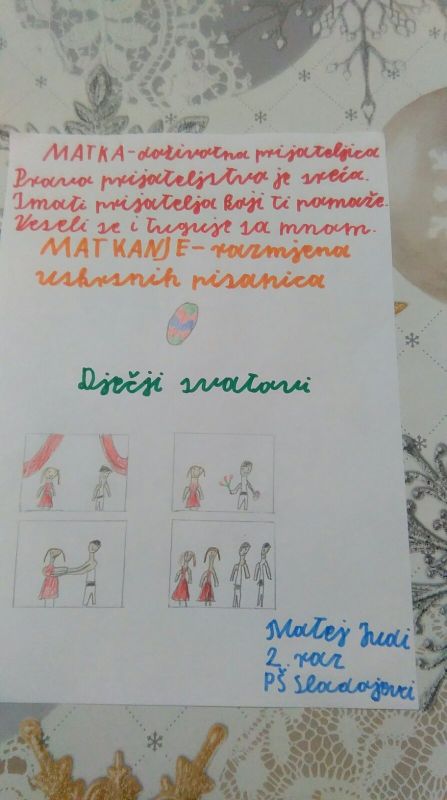 MATKA-doživotna prijateljica
Prava prijateljstva je sreća.
Imati prijatelja koji ti pomaže.
Veseli se i tuguje sa mnom.
MATKANJE-razmjena
uskrsnih pisanica
Dječji svatovi
Matej Judi
2. raz
PŠ Sladojevci